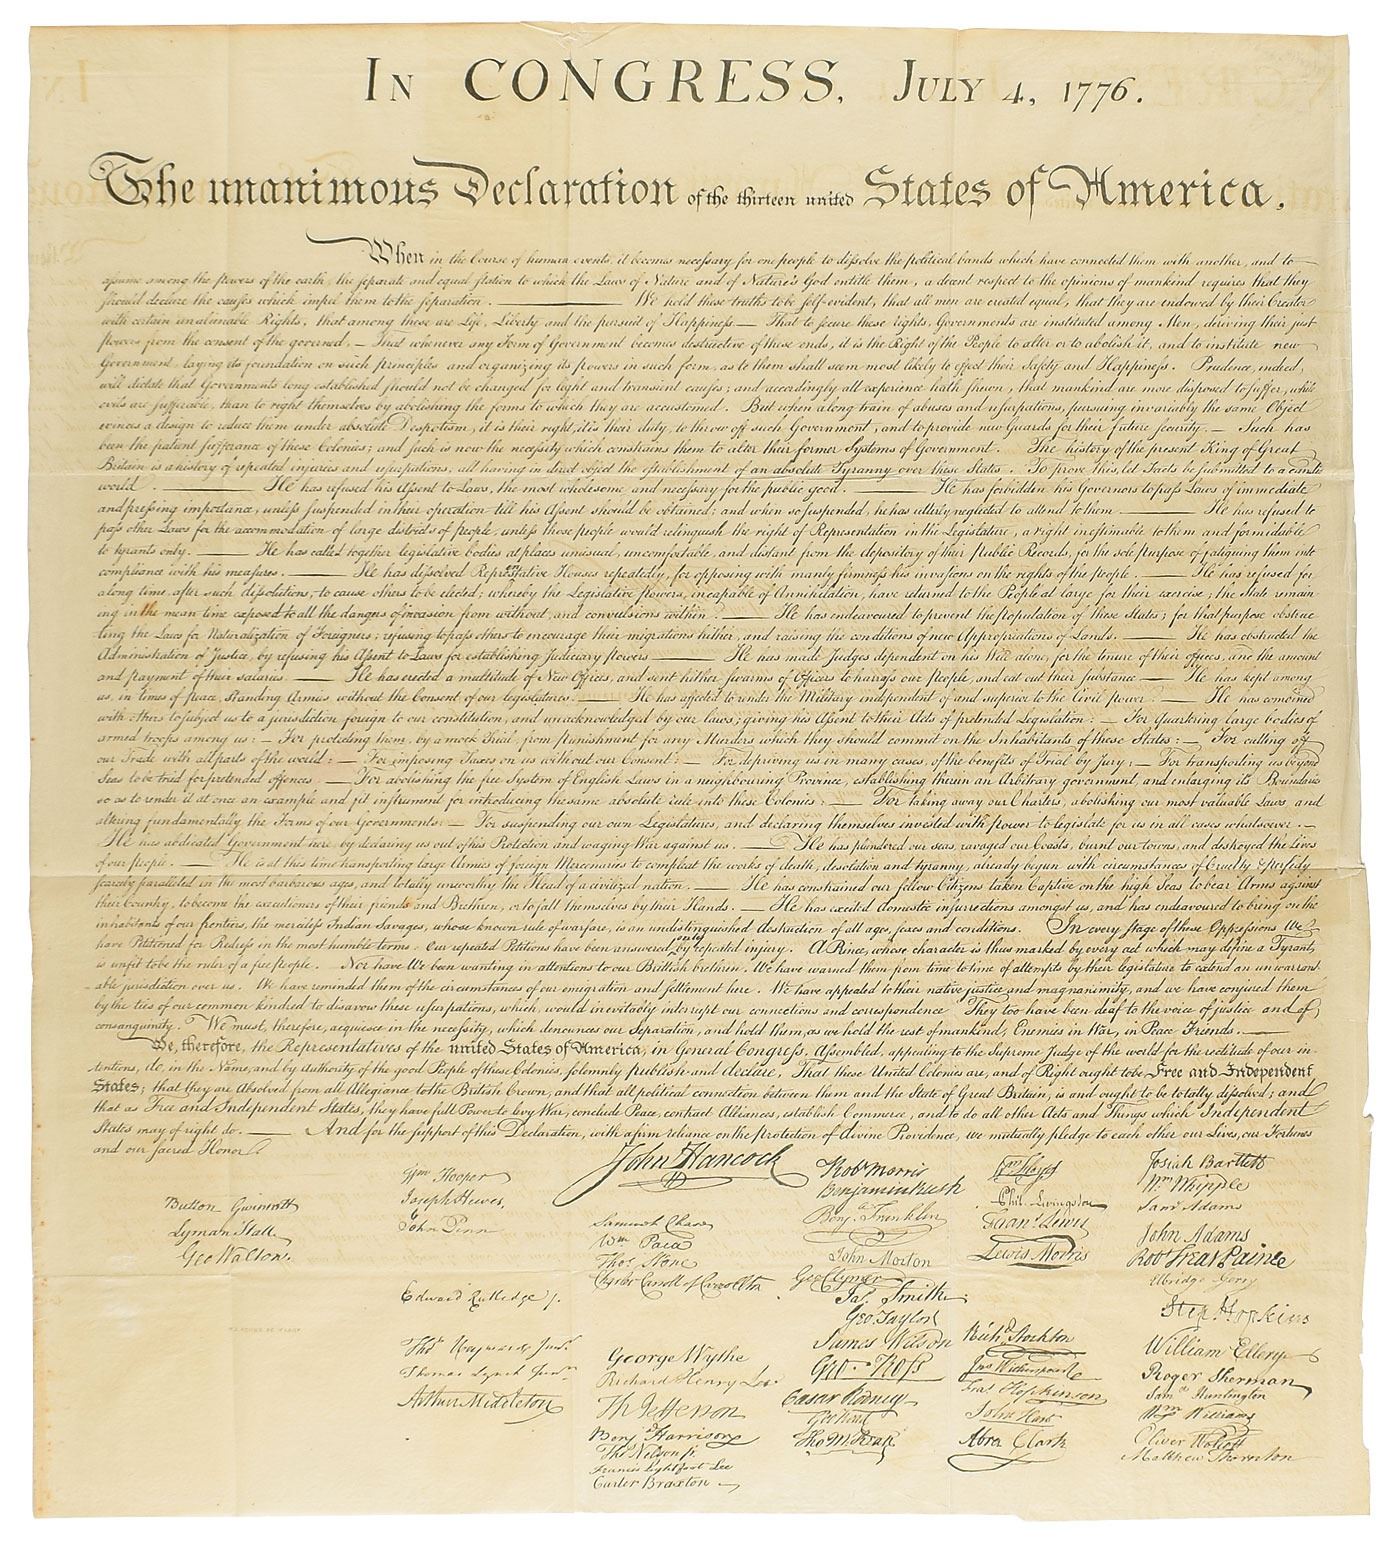 In CONGRESS, July 4, 1776.
The unanimous Declaration of the thirteen united States of America.
When in the Course of human events, it becomes necessary for one people to dissolve the political bands which have connected them with another, and to
assume among the powers of the earth, the separate and equal station to which the Laws of Nature and of Nature's God entitle them, a decent respect to the opinions of mankind requires that they
should declare the causes which impel them to the separation. We hold these truths to be self-evident, that all men are created equal, that they are endowed by their Creator
with certain unalienable Rights, that among these are Life, Liberty and the pursuit of Happiness — That to secure these rights, Governments are instituted among Men, deriving their just
powers from the consent of the governed, — That whenever any Form of Government becomes destructive of these ends, it is the Right of the People to alter or to abolish it, and to institute new
Government, laying its foundation on such principles and organizing its powers in such form, as to them shall seem most likely to effect their Safety and Happiness. Prudence, indeed,
will dictate that Governments long established should not be changed for light and transient causes; and accordingly all experience hath shewn, that mankind are more disposed to suffer, while
evils are sufferable, than to right themselves by abolishing the forms to which they are accustomed. But when a long train of abuses and usurpations, pursuing invariably the same Object
evinces a design to reduce them under absolute Despotism, it is their right, it is their duty, to throw off such Government, and to provide new Guards for their future security. — Such has
been the patient sufferance of these Colonies; and such is now the necessity which constrains them to alter their former Systems of Government. The history of the present King of Great
Britain is a history of repeated injuries and usurpations, all having in direct object the establishment of an absolute Tyranny over these States. To prove this, let Facts be submitted to a candid
world. He has refused his Assent to Laws, the most wholesome and necessary for the public good. He has forbidden his Governors to pass Laws of immediate
and pressing importance, unless suspended in their operation till his Assent should be obtained; and when so suspended, he has utterly neglected to attend to them. He has refused to
pass other Laws for the accommodation of large districts of people, unless those people would relinquish the right of Representation in the Legislature, a right inestimable to them and formidable
to tyrants only. He has called together legislative bodies at places unusual, uncomfortable, and distant from the depository of their public Records, for the sole purpose of fatiguing them into
compliance with his measures. He has dissolved Representative Houses repeatedly, for opposing with manly firmness his invasions on the rights of the people. He has refused for
a long time, after such dissolutions, to cause others to be elected; whereby the Legislative powers, incapable of Annihilation, have returned to the People at large for their exercise; the State remain-
ing in the mean time exposed to all the dangers of invasion from without, and convulsions within. He has endeavoured to prevent the population of these States; for that purpose obstruc-
ting the Laws for Naturalization of Foreigners; refusing to pass others to encourage their migrations hither, and raising the conditions of new Appropriations of Lands. He has obstructed the
Administration of Justice, by refusing his Assent to Laws for establishing Judiciary powers He has made Judges dependent on his Will alone, for the tenure of their offices, and the amount
and payment of their salaries. He has erected a multitude of New Offices, and sent hither swarms of Officers to harrass our people, and eat out their substance He has kept among
us, in times of peace, Standing Armies without the Consent of our legislatures. He has affected to render the Military independent of and superior to the Civil power. He has combined
with others to subject us to a jurisdiction foreign to our constitution, and unacknowledged by our laws; giving his Assent to their Acts of pretended Legislation: — For Quartering large bodies of
armed troops among us: — For protecting them, by a mock Trial, from punishment for any Murders which they should commit on the Inhabitants of these States: — For cutting off
our Trade with all parts of the world: — For imposing Taxes on us without our Consent: — For depriving us in many cases, of the benefits of Trial by jury: — For transporting us beyond
Seas to be tried for pretended offences — For abolishing the free System of English Laws in a neighbouring Province, establishing therein an Arbitrary government, and enlarging its Boundaries
so as to render it at once an example and fit instrument for introducing the same absolute rule into these Colonies: — For taking away our Charters, abolishing our most valuable Laws, and
altering fundamentally the Forms of our Governments: — For suspending our own Legislatures, and declaring themselves invested with power to legislate for us in all cases whatsoever. —
He has abdicated Government here, by declaring us out of his Protection and waging War against us. — He has plundered our seas, ravaged our Coasts, burnt our towns, and destroyed the Lives
of our people. — He is at this time transporting large Armies of foreign Mercenaries to compleat the works of death, desolation and tyranny, already begun with circumstances of Cruelty & perfidy
scarcely paralleled in the most barbarous ages, and totally unworthy the Head of a civilized nation. — He has constrained our fellow Citizens taken Captive on the high Seas to bear Arms against
their Country, to become the executioners of their friends and Brethren, or to fall themselves by their Hands. — He has excited domestic insurrections amongst us, and has endeavoured to bring on the
inhabitants of our frontiers, the merciless Indian Savages, whose known rule of warfare, is an undistinguished destruction of all ages, sexes and conditions. In every stage of these Oppressions We
have Petitioned for Redress in the most humble terms: Our repeated Petitions have been answered only by repeated injury. A Prince, whose character is thus marked by every act which may define a Tyrant,
is unfit to be the ruler of a free people. Nor have We been wanting in attentions to our Brittish brethren. We have warned them from time to time of attempts by their legislature to extend an unwarrant-
able jurisdiction over us. We have reminded them of the circumstances of our emigration and settlement here. We have appealed to their native justice and magnanimity, and we have conjured them
by the ties of our common kindred to disavow these usurpations, which, would inevitably interrupt our connections and correspondence They too have been deaf to the voice of justice and of
consanguinity. We must, therefore, acquiesce in the necessity, which denounces our Separation, and hold them, as we hold the rest of mankind, Enemies in War, in Peace Friends.
We, therefore, the Representatives of the united States of America, in General Congress, Assembled, appealing to the Supreme Judge of the world for the rectitude of our in-
tentions, do, in the Name, and by authority of the good People of these Colonies, solemnly publish and declare, That these United Colonies are, and of Right ought to be Free and Independent
States; that they are Absolved from all Allegiance to the British Crown, and that all political connection between them and the State of Great Britain, is and ought to be totally dissolved; and
that as Free and Independent States, they have full Power to levy War, conclude Peace, contract Alliances, establish Commerce, and to do all other Acts and Things which Independent
States may of right do. And for the support of this Declaration, with a firm reliance on the protection of divine Providence, we mutually pledge to each other our Lives, our Fortunes
and our sacred Honor.
Button Gwinnett
Lyman Hall
Geo Walton.
Wm Hooper
Joseph Hewes,
John Penn
Edward Rutledge /.
Thos Heyward Junr.
Thomas Lynch Junr.
Arthur Middleton
John Hancock
Samuel Chase
Wm Paca
Thos Stone
Charles Carroll of Carrollton
George Wythe
Richard Henry Lee
Th Jefferson
Benj Harrison
Thos Nelson jr
Francis Lightfoot Lee
Carter Braxton
Robt Morris
Benjamin Rush
Benja. Franklin
John Morton
Geo Clymer
Jas. Smith
Geo. Taylor
James Wilson
Geo. Ross
Caesar Rodney
Geo Read
Tho M:Kean
Wm Floyd
Phil. Livingston
Frans. Lewis
Lewis Morris
Richd. Stockton
Jno Witherspoon
Fras. Hopkinson
John Hart
Abra Clark
Josiah Bartlett
Wm Whipple
Saml Adams
John Adams
Robt Treat Paine
Elbridge Gerry
Step. Hopkins
William Ellery
Roger Sherman
Saml Huntington
Wm Williams
Oliver Wolcott
Matthew Thornton